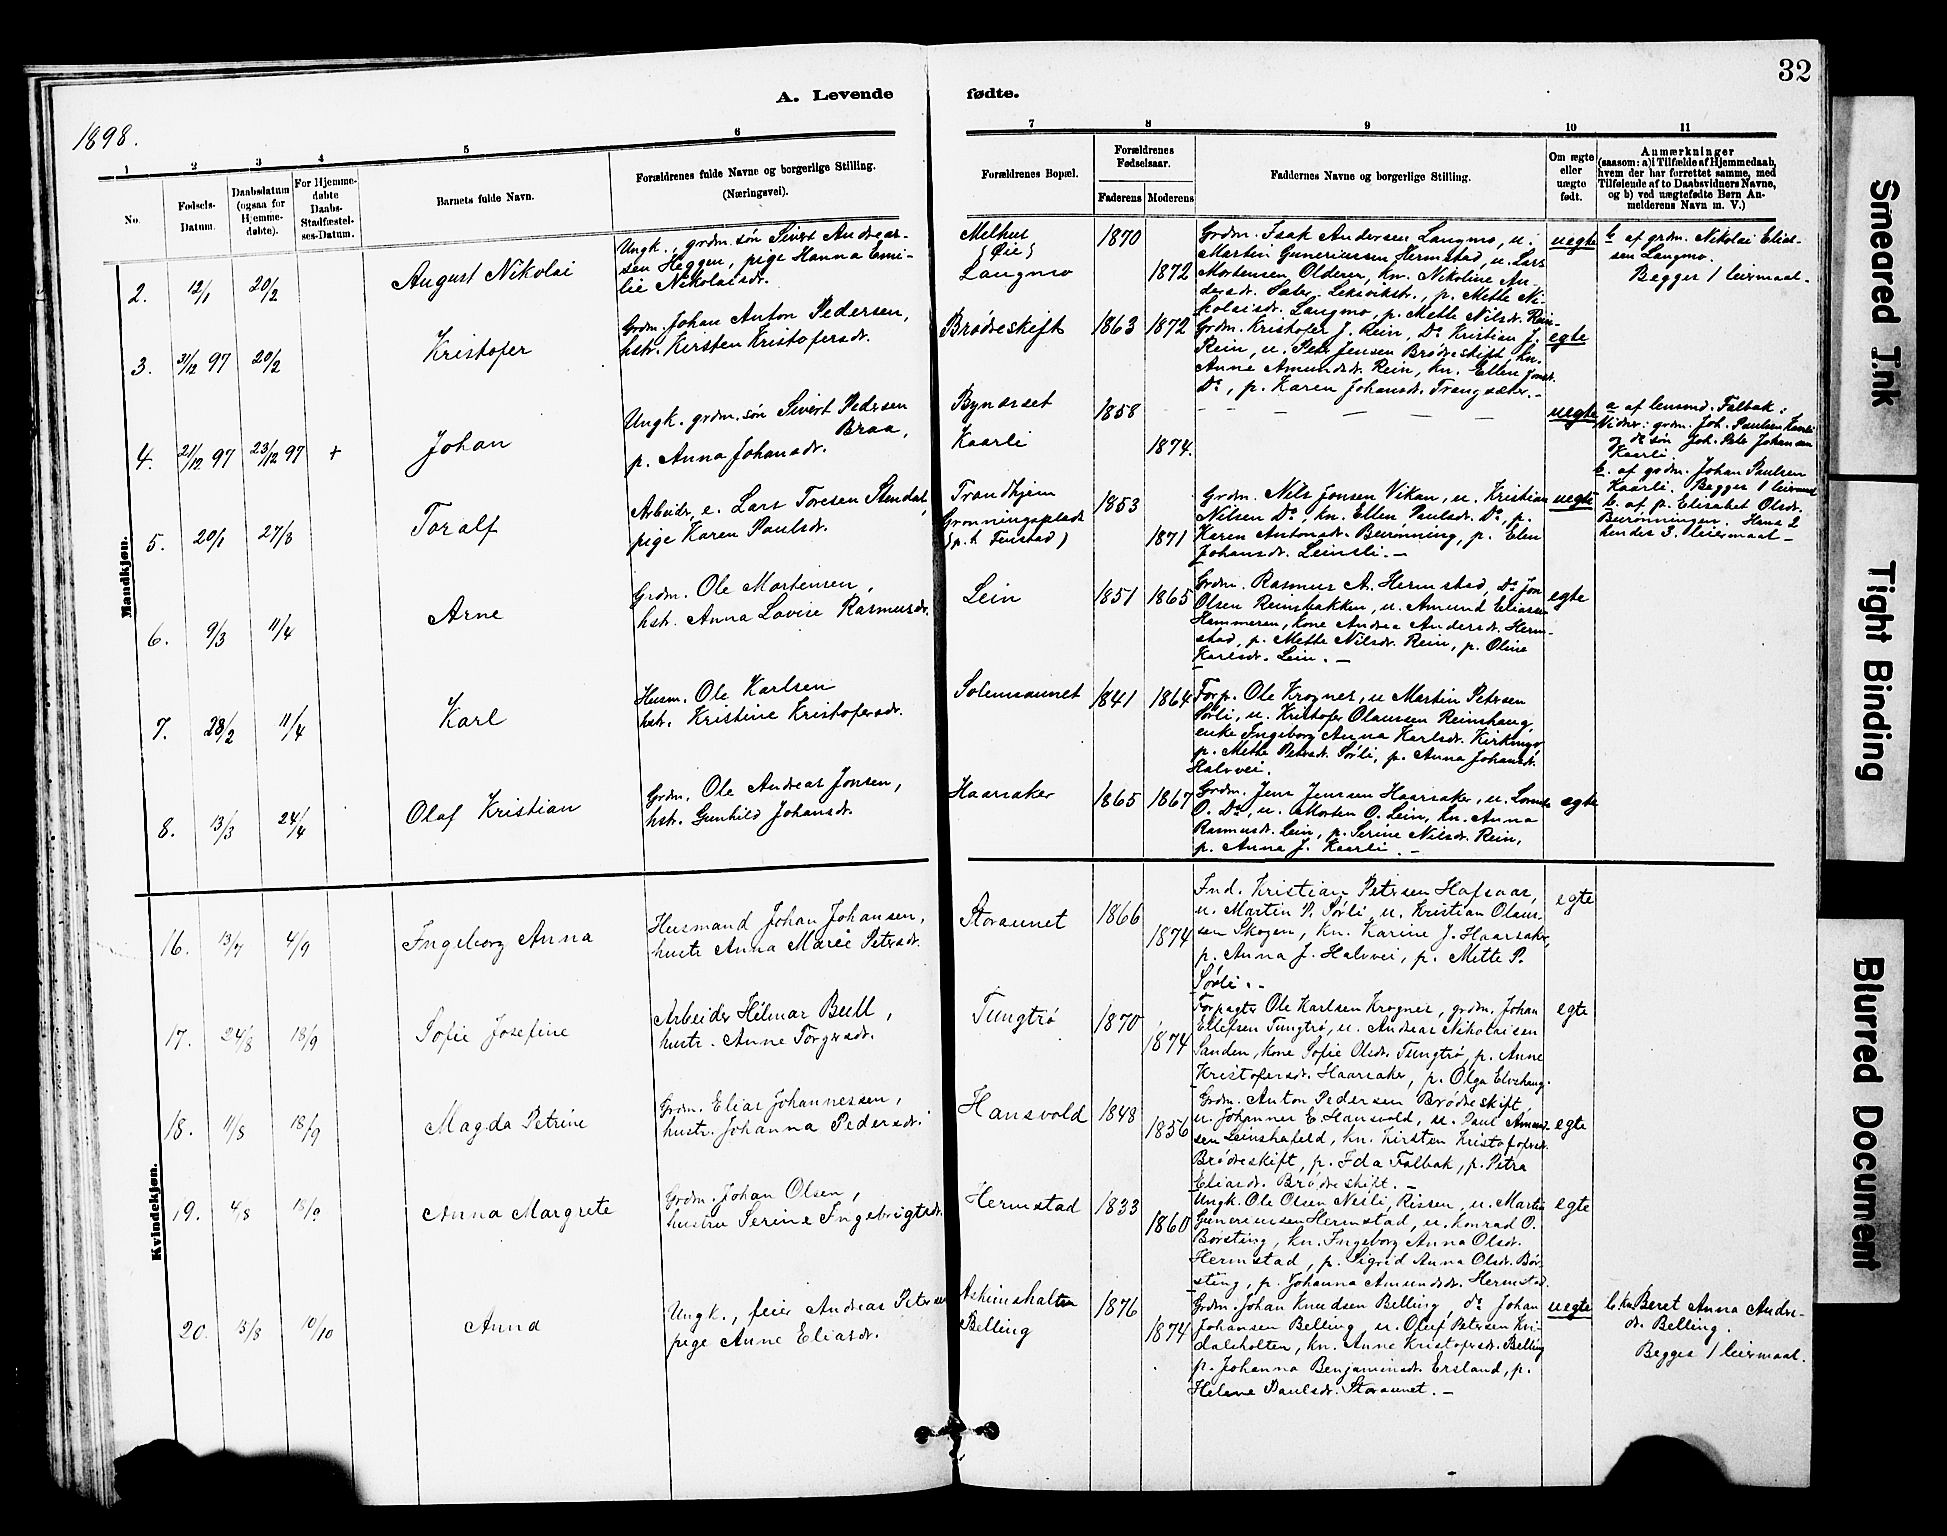 32
A. Levende fødte.
1898.
1 2 3 4 5 6 7 8 9 10 11
No.
Fødsels-
Datum.
Daabsdatum
(ogsaa for
Hjemme-
døbte).
For Hjemme-
døbte
Daabs-
Stadfæstel-
ses-Datum.
Barnets fulde Navn.
Forældrenes fulde Navne og borgerlige Stilling.
(Næringsvei).
Forældrenes Bopæl.
Forældrenes
Fødselsaar.
Faderens Moderens
Faddernes Navne og borgerlige Stilling.
Om ægte
eller
uægte
født.
Anmærkninger
(saasom: a) i Tilfælde af Hjemmedaab,
hvem der har forrettet samme, med
Tilføiende af to Daabsvidners Navne,
og b) ved uægtefødte Børn An-
melderens Navn m. V.)
Mandkjøn.
2. 12/1 20/2 August Nikolai
Ungk., grdm. søn Sivert Andreas-
sen Heggen, pige Hanna Emi-
lie Nikolaisdr.
Melhus
(Øie)
Langmo
1870
1872
Grdm. Isak Andersen Langmo, u.
Martin Guneriussen Hermstad, u. Lars
Mortensen Olderen, kn. Nikoline An-
dersdr. Sæter, Leksvikstr., p. Mette Ni-
kolaisdr. Langmo, p. Mette Nilsdr. Rein.
uegte
b af grdm. Nikolai Elias-
sen Langmo.
Begges 1 leiermaal.
3. 31/12 97 20/2 Kristofer
Grdm. Johan Anton Pedersen,
hstr. Kirsten Kristofersdr.
Brødreskift 1863 1872
Grdm. Kristofer J. Rein, Do Kristian J.
Rein, u. Peter Jensen Brødreskift, kn.
Anne Amundsdr. Rein, kn. Ellen Jonsdr.
Do, p. Karen Johansdr. Trangsæter.
egte
4. 21/12 97 23/12 97 + Johan
Ungk. grdm. søn Sivert Pedersen
Braa,
p. Anna Johansdr.
Bynæsset
Kaarli
1858
1874.
uegte
a af lensmd. Falbak.
Vidner: grdm. Joh. Paulsen Kaarli
og ds søn Joh. Peter Johansen
Kaarli.
b. af grdm. Johan Paulsen
Kaarli. Begges 1 leiermaal
5. 20/1 27/3 Toralf
Arbeider, e. Lars Toresen Stendal,
pige Karen Paulsdr.
Trondhjem
Grønningsplads
(p.t. Finstad)
1853
1871
Grdm. Nils Jonsen Vikan, u. Kristian
Nilsen Do, kn. Ellen Paulsdr. Do, p.
Karen Antonsdr. Burønning, p. Elen
Johansdr. Leinsli.
uegte
b. af p. Elisabet Olsdr.
Burønningen. Hans 2
hendes 3. leiermaal
6. 9/3 11/4 Arne
Grdm. Ole Mortensen,
hstr. Anna Lovise Rasmusdr.
Lein 1851 1865
Grdm. Rasmus A. Hermstad, Do Jon
Olsen Reinsbakken, u. Amund Eliassen
Hammeren, kone Andrea Andersdr. Herm-
stad, p. Mette Nilsdr. Rein, p. Oline
Karlsdr. Lein.
egte
7. 28/2 11/4 Karl
Husm. Ole Karlsen
hstr. Kristine Kristofersdr.
Solemsaunet 1841 1864
Forp. Ole Krognes, u Martin Petersen
Sørli, u. Kristofer Olaussen Reinshaug,
enke Ingeborg Anna Karlsdr.
p. Mette Petersdr. Sørli, p. Anna Johansdr.
Halvvei.
8. 13/3 24/4 Olaf Kristian
Grdm. Ole Andreas Jonsen,
hstr. Gunhild Johansdr.
Haarsaker 1865 1867
Grdm. Jens Jensen Haarsaker, u.
O. Do, u. Morten O. Lein, kn. Anna
Rasmusdr. Lein, p. Serine Nilsdr. Rein,
p. Anna J. Kaarli.
egte
Kvindekjøn.
16. 13/7 4/9 Ingeborg Anna
Husmand Johan Johansen,
hustr. Anna Marie Petersdr.
Storaunet
1866
1874
Ind. Kristian Petersen Hafsaas,
u. Martin P. Sørli, u. Kristian Olaus-
sen Skogen, kn. Karine J. Haarsaker,
p. Anna J. Halvvei, p. Mette P.
Sørli.
egte
17. 24/8 18/9 Sofie Josefine
Arbeider Hilmar Bull,
hustr. Anne Torgersdr.
Tungtrø
1870
1874
Forpagter Ole Karlsen Krognes, grdm. Johan
Ellefsen Tungtrø, u. Andreas Nikolaisen
Sanden, kone Sofie Olsdr. Tungtrø, p. Anne
Kristofersdr. Haarsaker, p. Olga Elvehaug.
egte
18. 11/8 18/9 Magda Petrine
Grdm. Elias Johannessen,
hustr. Johanna Pedersdr.
Hansvold
1848
1856
Grdm. Anton Pedersen Brødreskift,
u. Johannes E. Hansvold, u. Paul Amund-
sen, kn. Kirsten Kristofersdr.
Brødreskift, p. Ida Falbak, p. Petra
Eliasdr. Brødreskift.
egte
19. 4/8 18/9 Anna Margrete
Grdm. Johan Olsen,
hustru Serine Ingebrigtsdr.
Hermstad
1833
1860
Ungk. Ole Olsen Nesli, Rissen, u. Martin
Guneriussen Hermstad, u. Konrad O.
Børsting, kn. Ingeborg Anna Olsdr.
Hermstad, p. Sigrid Anna Olsdr. Bør-
sting, p. Johanna Amundsdr. Hermstad.
egte
20. 13/8 10/10 Anna
Ungk., feier Andreas Petersen
pige Anne Eliasdr.
Askimshalten
Belling
1876
1874
Grdm. Johan Knudsen Belling, do Johan
Johansen Belling, u. Oluf Petersen Kri-
dalsholten, kn. Anne Kristofersdr. Belling
p. Johanna Benjaminsdr. Ersland, p.
Helene Paulsdr. Storaunet.
uegte
b. kn. Beret Anna Andre-
dr. Belling.
Begges 1 leiermaal.
Smeared Ink
Tight Binding
Blurred Document